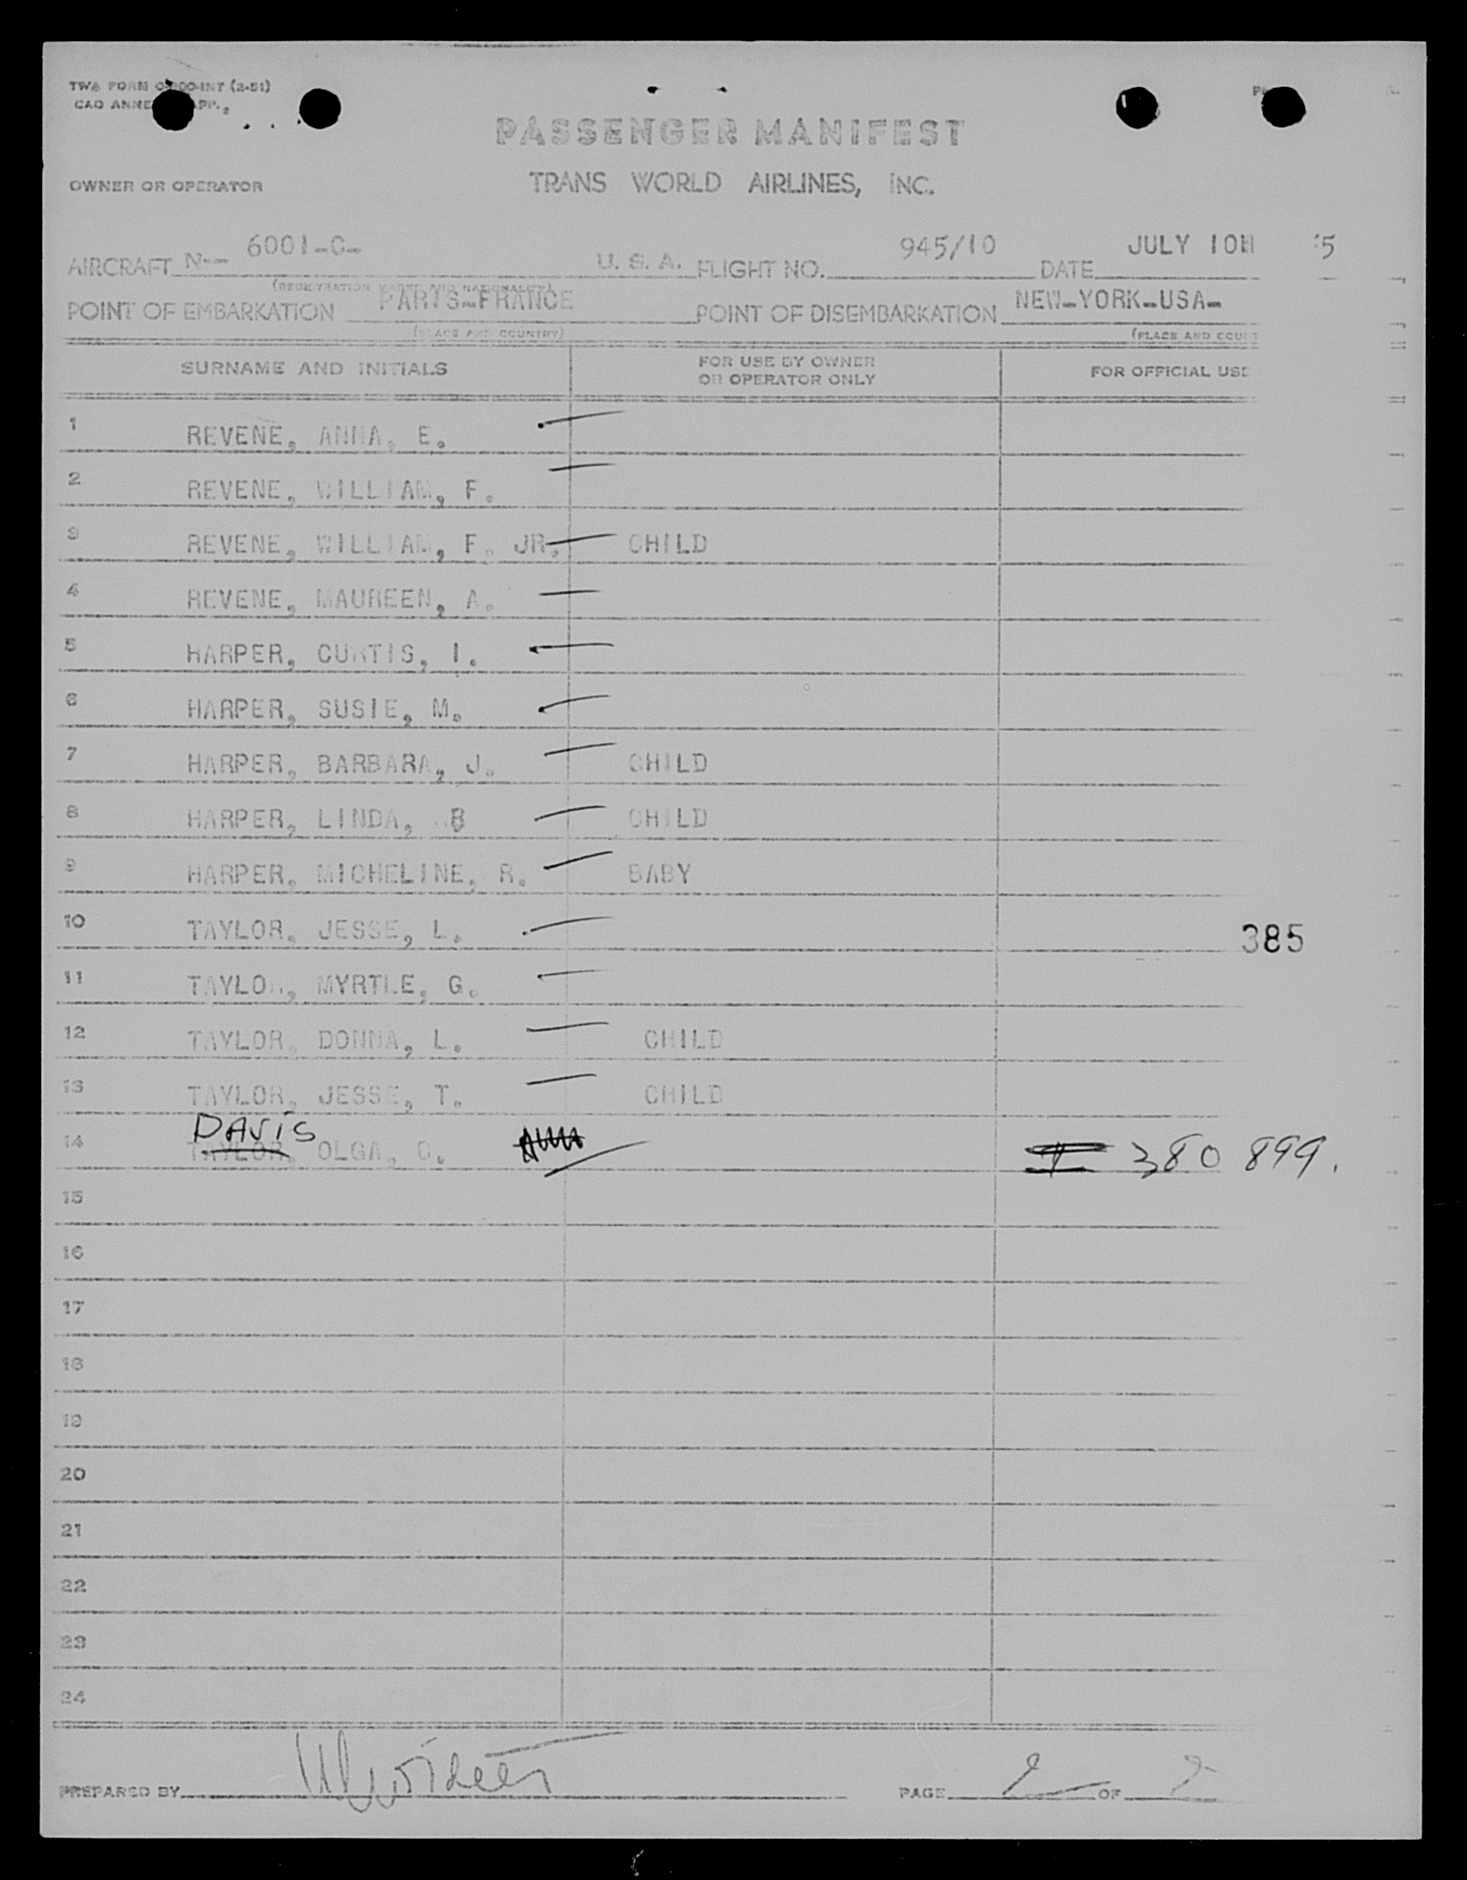 TWA FORM (2-51)
CAO APP.
PASSENGER MANIFEST
OWNER OR OPERATOR TRANS WORLD AIRLINES, INC.
AIRCRAFT N-- 6001-C- U. S. A. FLIGHT NO. 945/10 DATE JULY 10H 5
(REGISTRATION MARKS AND NATIONALITY)
POINT OF EMBARKATION PARIS-FRANCE POINT OF DISEMBARKATION NEW-YORK-USA-
(PLACE AND COUNTRY) (PLACE AND COUNT
SURNAME AND INITIALS FOR USE BY OWNER OR OPERATOR ONLY FOR OFFICIAL USE
1 REVENE, ANNA, E.
2 REVENE, WILLIAM, F.
3 REVENE, WILLIAM, F. JR. CHILD
4 REVENE, MAUREEN, A.
5 HARPER, CURTIS, I.
6 HARPER, SUSIE, M.
7 HARPER, BARBARA, J. CHILD
8 HARPER, LINDA, B CHILD
9 HARPER, MICHELINE, R. BABY
10 TAYLOR, JESSE, L. 385
11 TAYLOR, MYRTLE, G.
12 TAYLOR, DONNA, L. CHILD
13 TAYLOR, JESSE, T. CHILD
DAVIS
14 TAYLOR, OLGA, O. 380 899.
15
16
17
18
19
20
21
22
23
24
PREPARED BY PAGE 2 OF 2